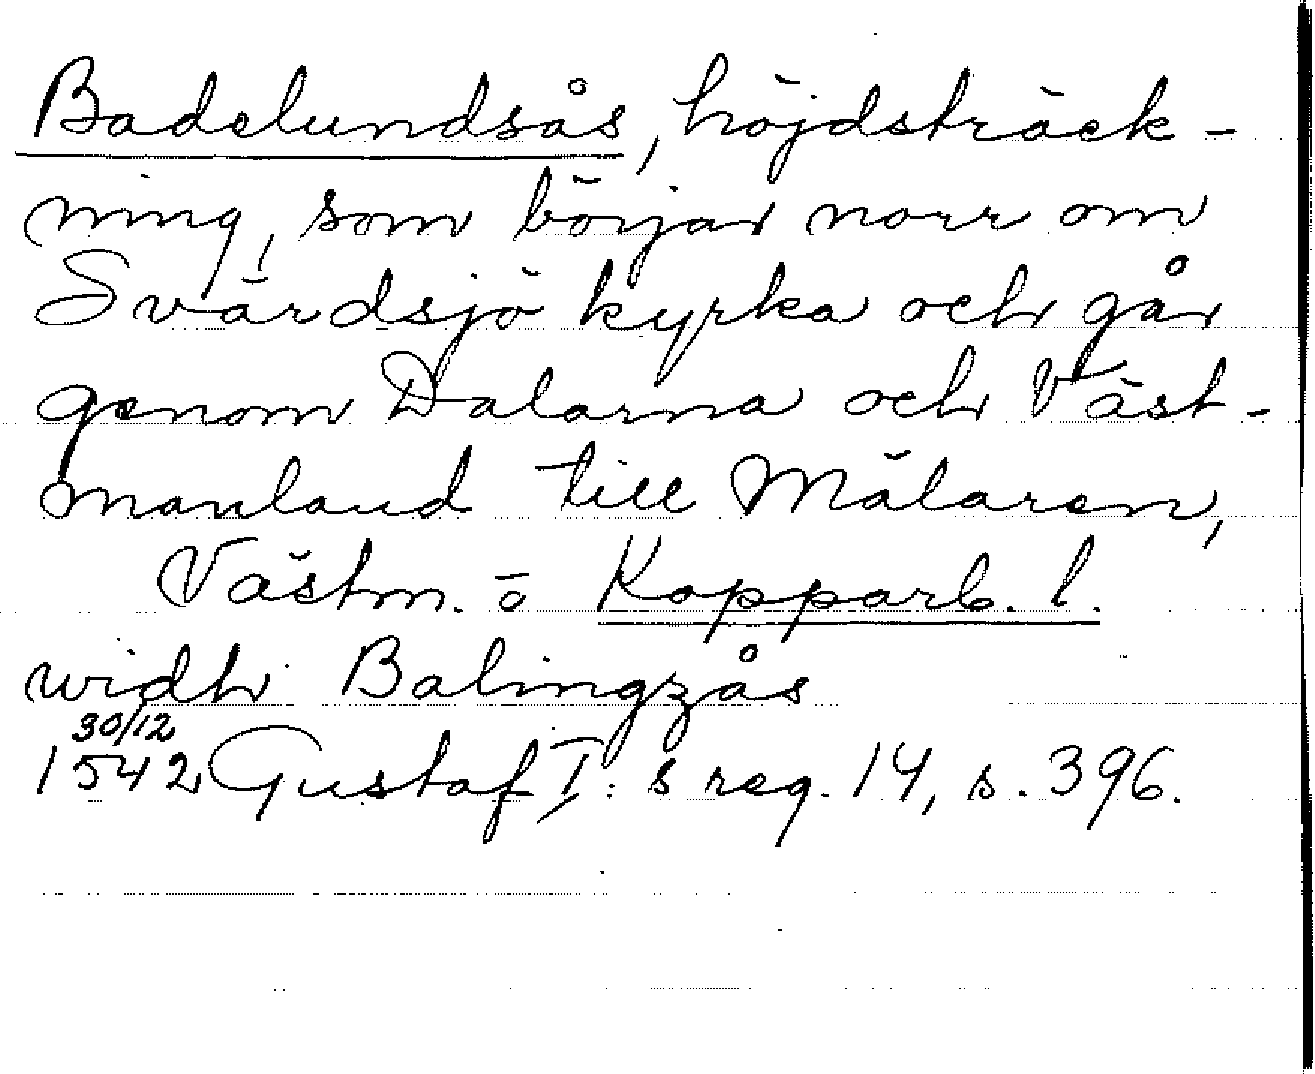 Badelundsås, höjdsträck-
ning, som börjar norr om
Svärdsjö kyrka och går
genom Dalarna och Väst-
manland till Mälaren,
Västm. o Kopparb. l.
widh Balingzås
30/12
1542 Gustaf I:s reg. 14, s. 396.